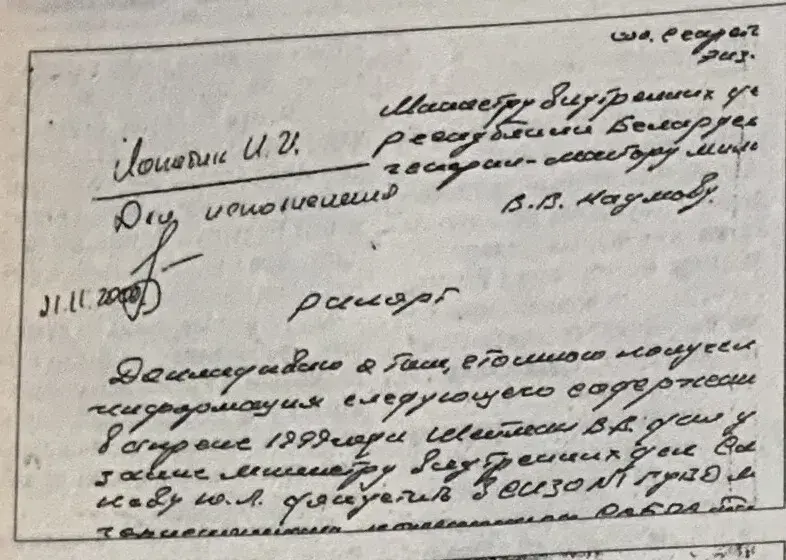 сов. секрет
экз.
Министру внутренних де
республики Беларусь
генерал-майору мили
В.В. Наумову.
Лопатик Н.И.
Для исполнения
21.11.2000
рапорт
Докладываю о том, что мною получен
информация следующего содержани
в апреле 1999 года Шейман В.В. дал у
зание министру внутренних дел Си
кову Ю.Л. допустить в СИЗО №1 ГУВД М